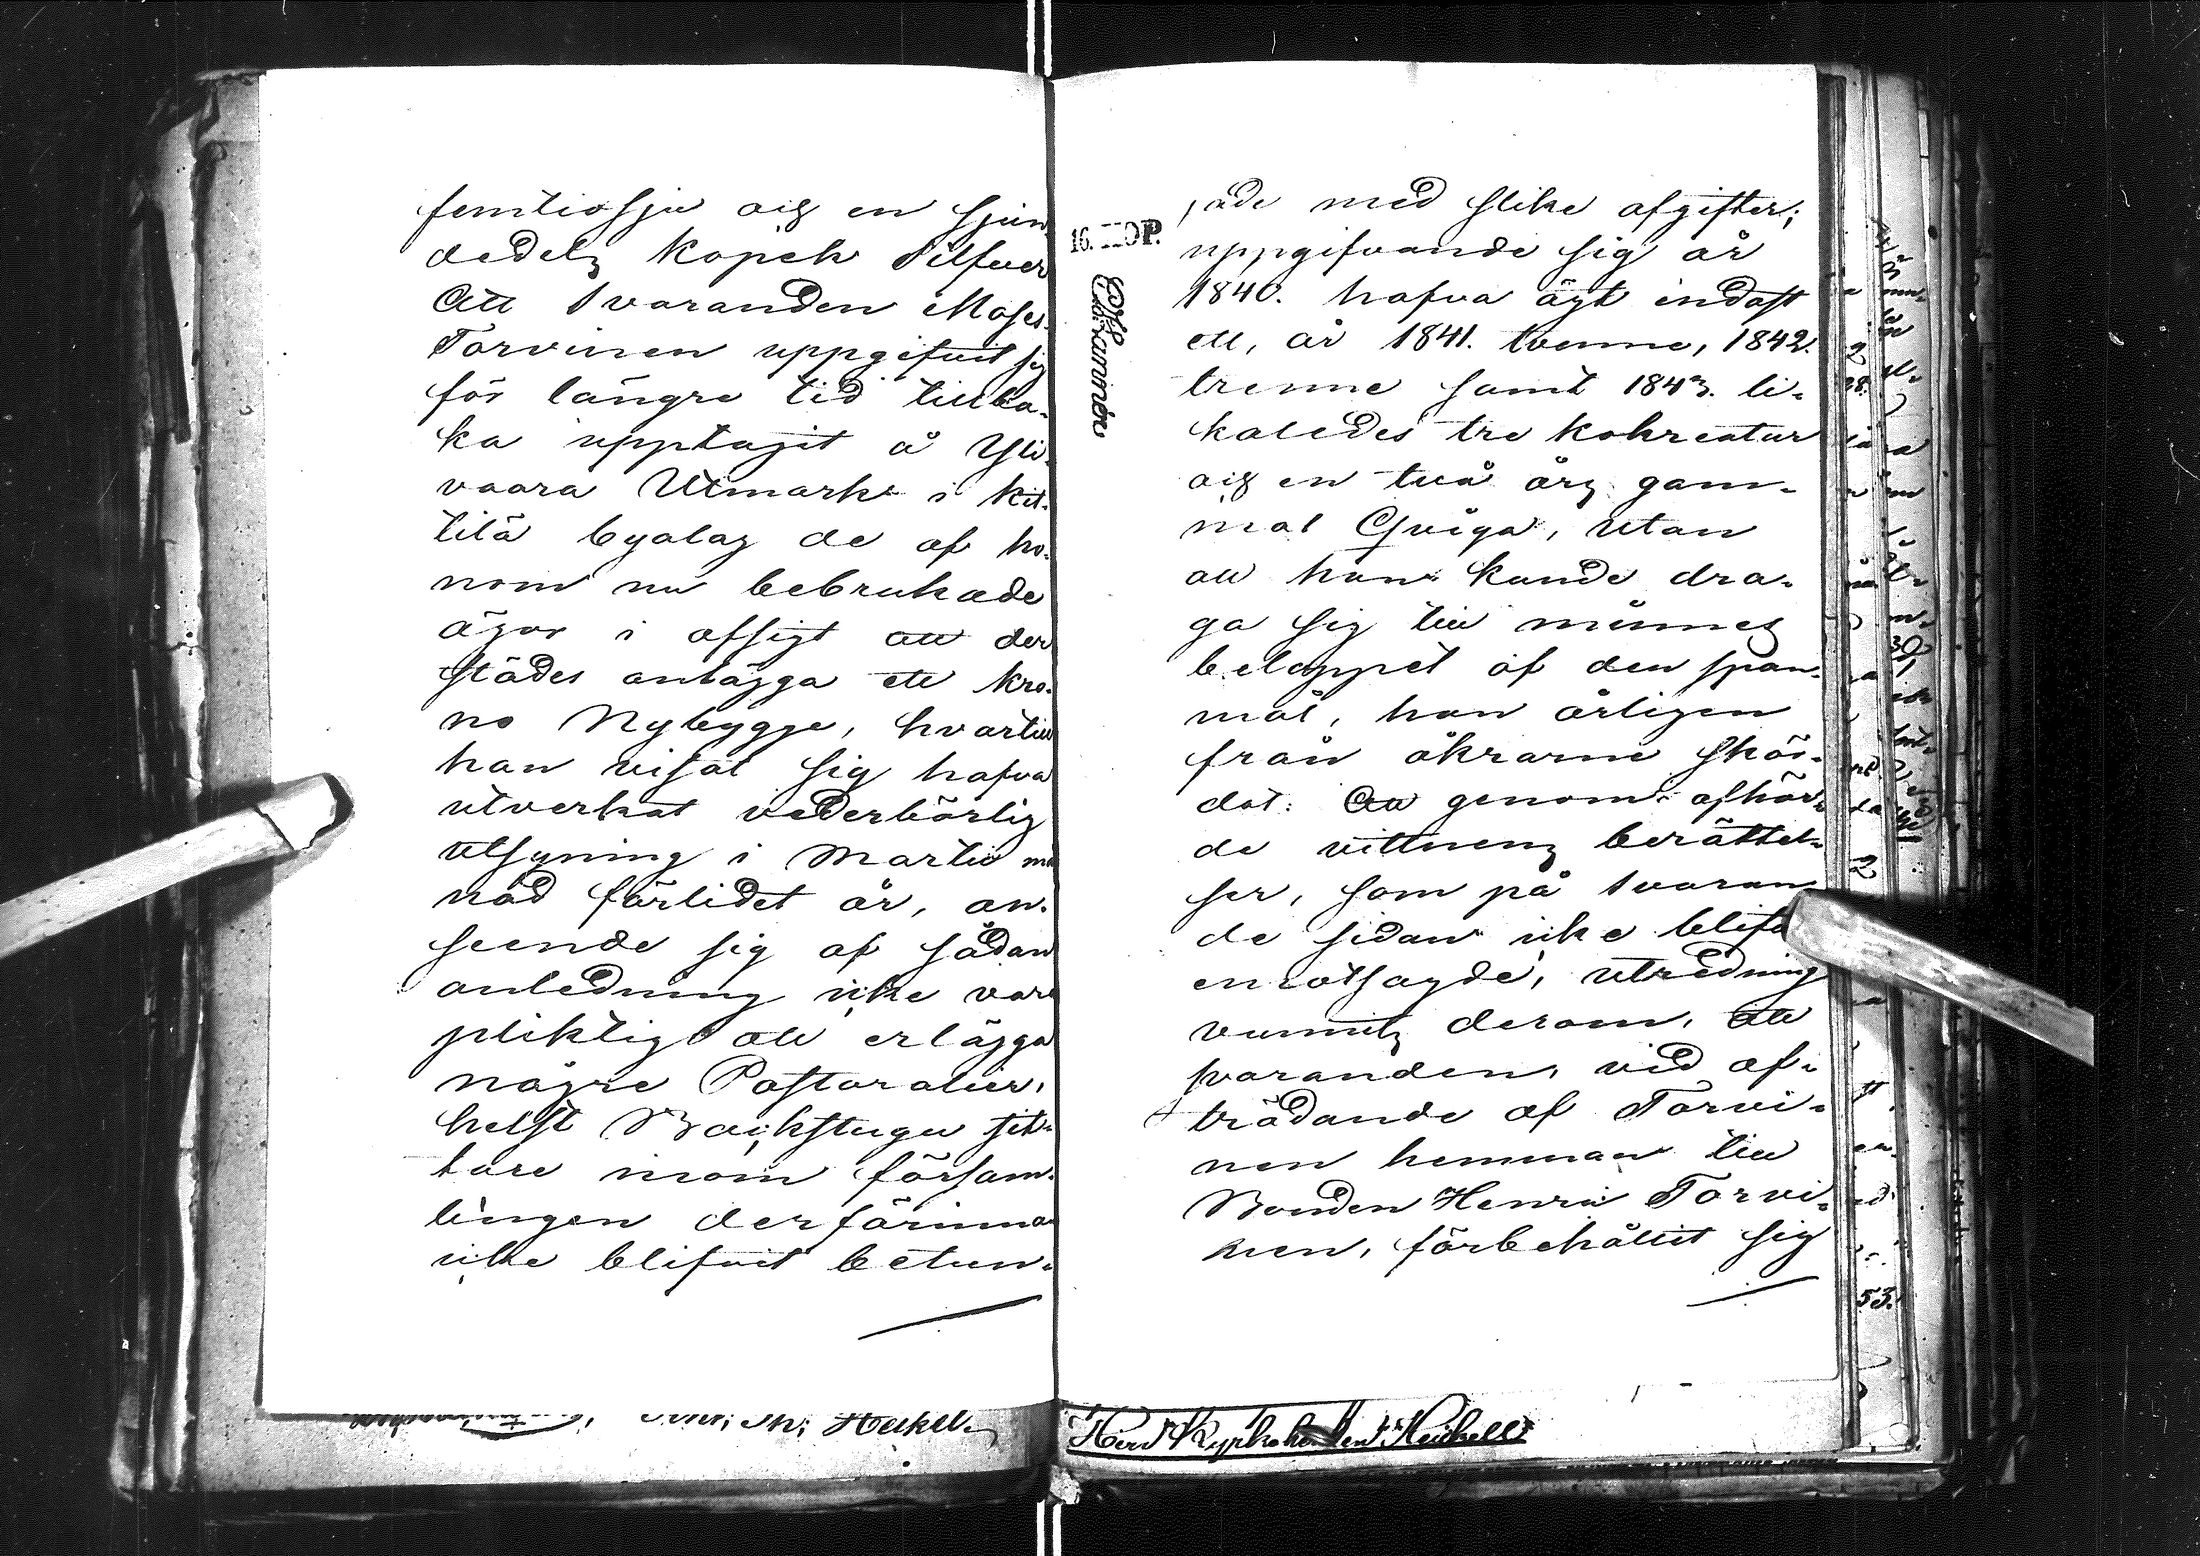 femtiosju och en sjun-
dedels Kopek Silfver
Att Svaranden Moses
Torvinen uppgifvit sig
för längre tid tillba-
ka upptagit å Yli-
vaara Utmark i Kit-
tilä byalag de af ho-
nom nu bebrukade
ägor i afsigt att der
städes anlägga ett kro-
no Nybygge, hvartill
han visat sig hafva
utverkat vederbörlig
utsyning i Martii må
nad förlidet år, an-
seende sig af sådan
anledning icke vara
pliktig att erlägga
några Pastoralier,
helst Backstugu sit-
tare inom försam-
lingen derförinna
icke blifvit betun-
gade med slike afgifter;
uppgifvande sig år
1840. hafva ägt endast
ett, år 1841. tvenne, 1842.
trenne samt 1843. li-
kaledes tre kokreatur
och en två års gam-
mal Qviga, utan
att han kunde dra-
ga sig till minnes
beloppet af den span-
mål, han årligen
från åkrarne skör-
dat: Att genom afhör-
de vittnens berättel-
ser, som på Svaran
de sidan icke blifv
enotsagde, utredning
vunnits derom, att
svaranden, vid af-
trädande af Torvi-
nen hemman till
Bonden Henric Torvi-
nen, förbehållit sig
16. KOP.
Heikel
53.